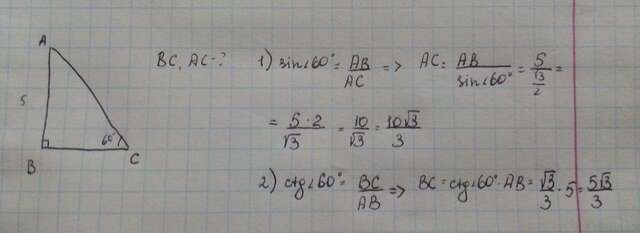 A
5
B
60°
C
BC, AC - ?
1) sin∠60° = AB/AC => AC = AB/sin∠60° = 5/(√3/2) =
= 5·2/√3 = 10/√3 = 10√3/3
2) ctg∠60° = BC/AB => BC = ctg∠60° · AB = √3/3 · 5 = 5√3/3